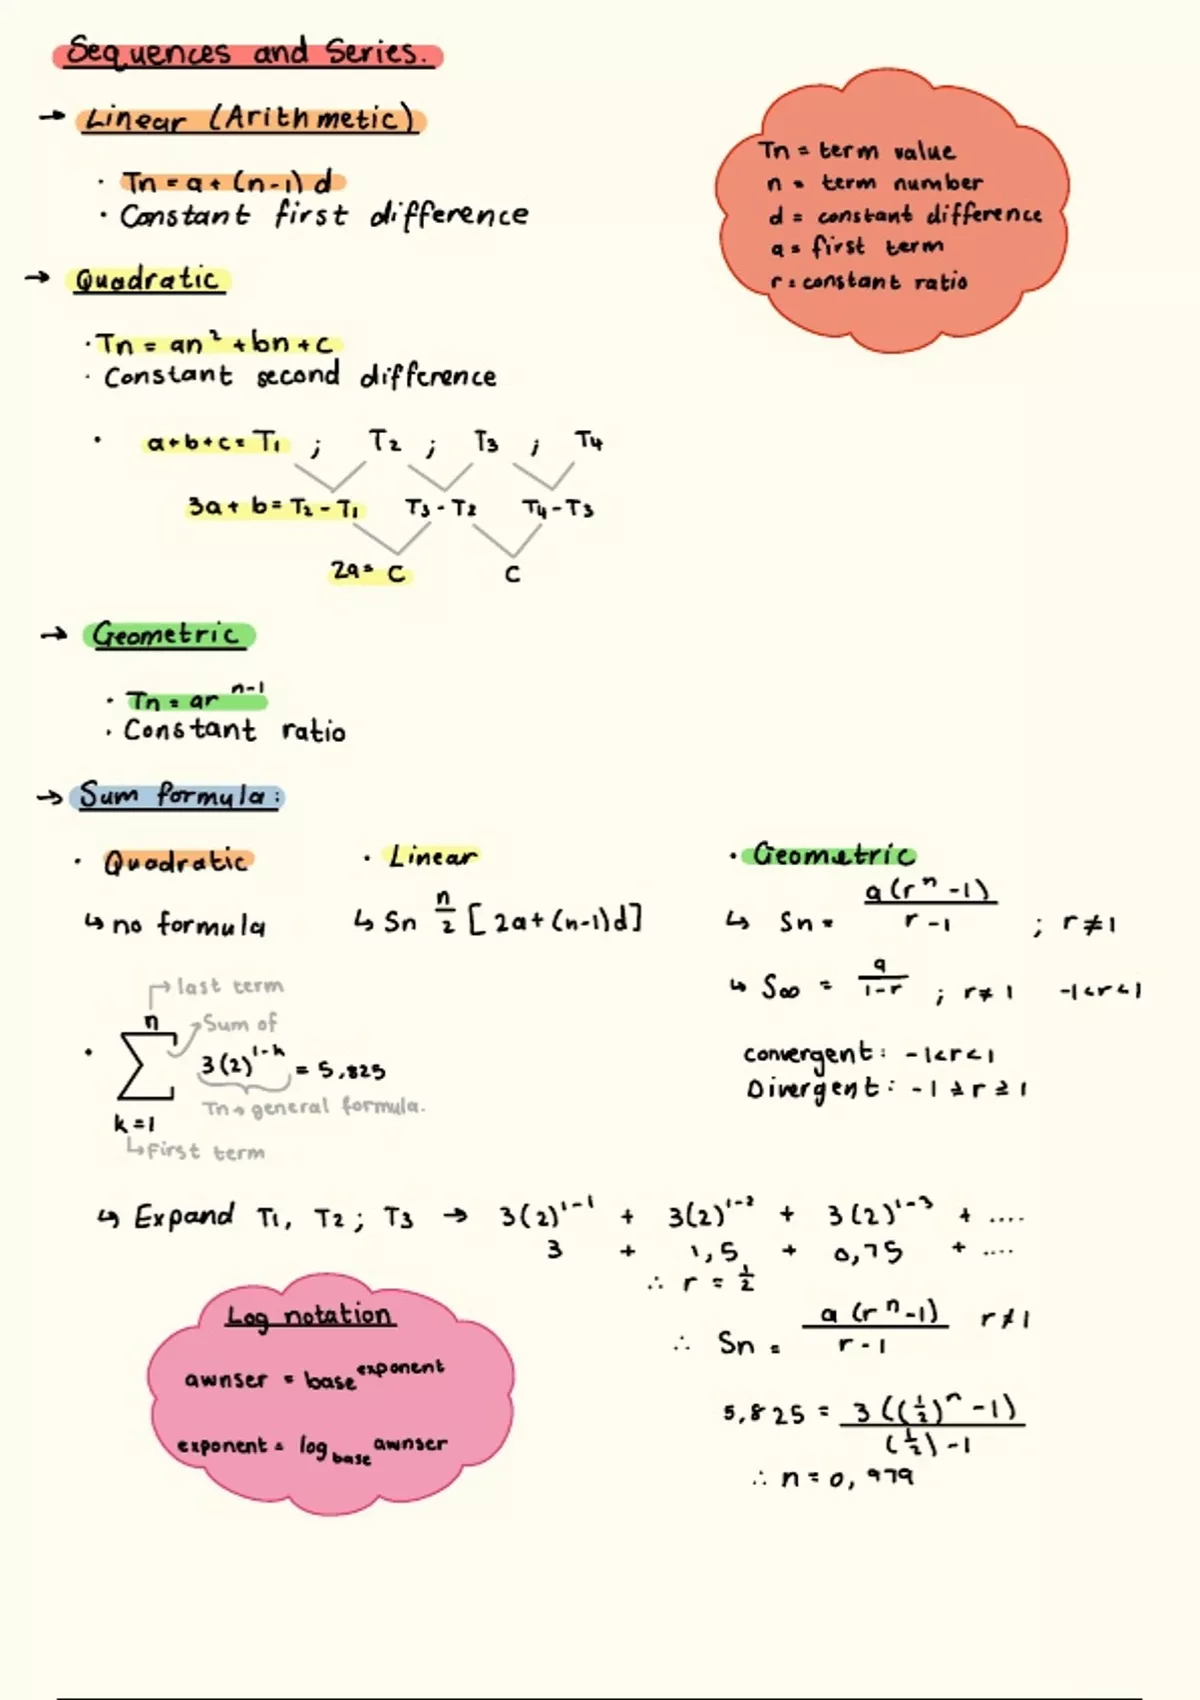 Sequences and Series.
→ Linear (Arithmetic)
· Tn = a + (n-1) d
· Constant first difference
Tn = term value
n = term number
d = constant difference
a = first term
r = constant ratio
→ Quadratic
· Tn = an² + bn + c
· Constant second difference
· a+b+c = T₁ ; T₂ ; T₃ ; T₄
3a + b = T₂ - T₁ T₃ - T₂ T₄ - T₃
2a = C C
→ Geometric
· Tn = ar^(n-1)
· Constant ratio
→ Sum formula:
· Quadratic
↳ no formula
· Linear
↳ Sn n/2 [2a+(n-1)d]
· Geometric
↳ Sn = a(rⁿ-1)/(r-1) ; r≠1
↳ S∞ = a/(1-r) ; r≠1 -1<r<1
convergent: -1<r<1
Divergent: -1 ≥ r ≥ 1
last term
n
Sum of
· ∑ 3(2)^(1-k) = 5,825
Tn → general formula.
k=1
↳First term
↳ Expand T₁, T₂; T₃ → 3(2)^(1-1) + 3(2)^(1-2) + 3(2)^(1-3) + ....
3 + 1,5 + 0,75 + ....
∴ r = 1/2
∴ Sn = a(rⁿ-1)/(r-1) r≠1
5,825 = 3((1/2)ⁿ-1)/((1/2)-1)
∴ n = 0,979
Log notation
awnser = base^exponent
exponent = log_base awnser